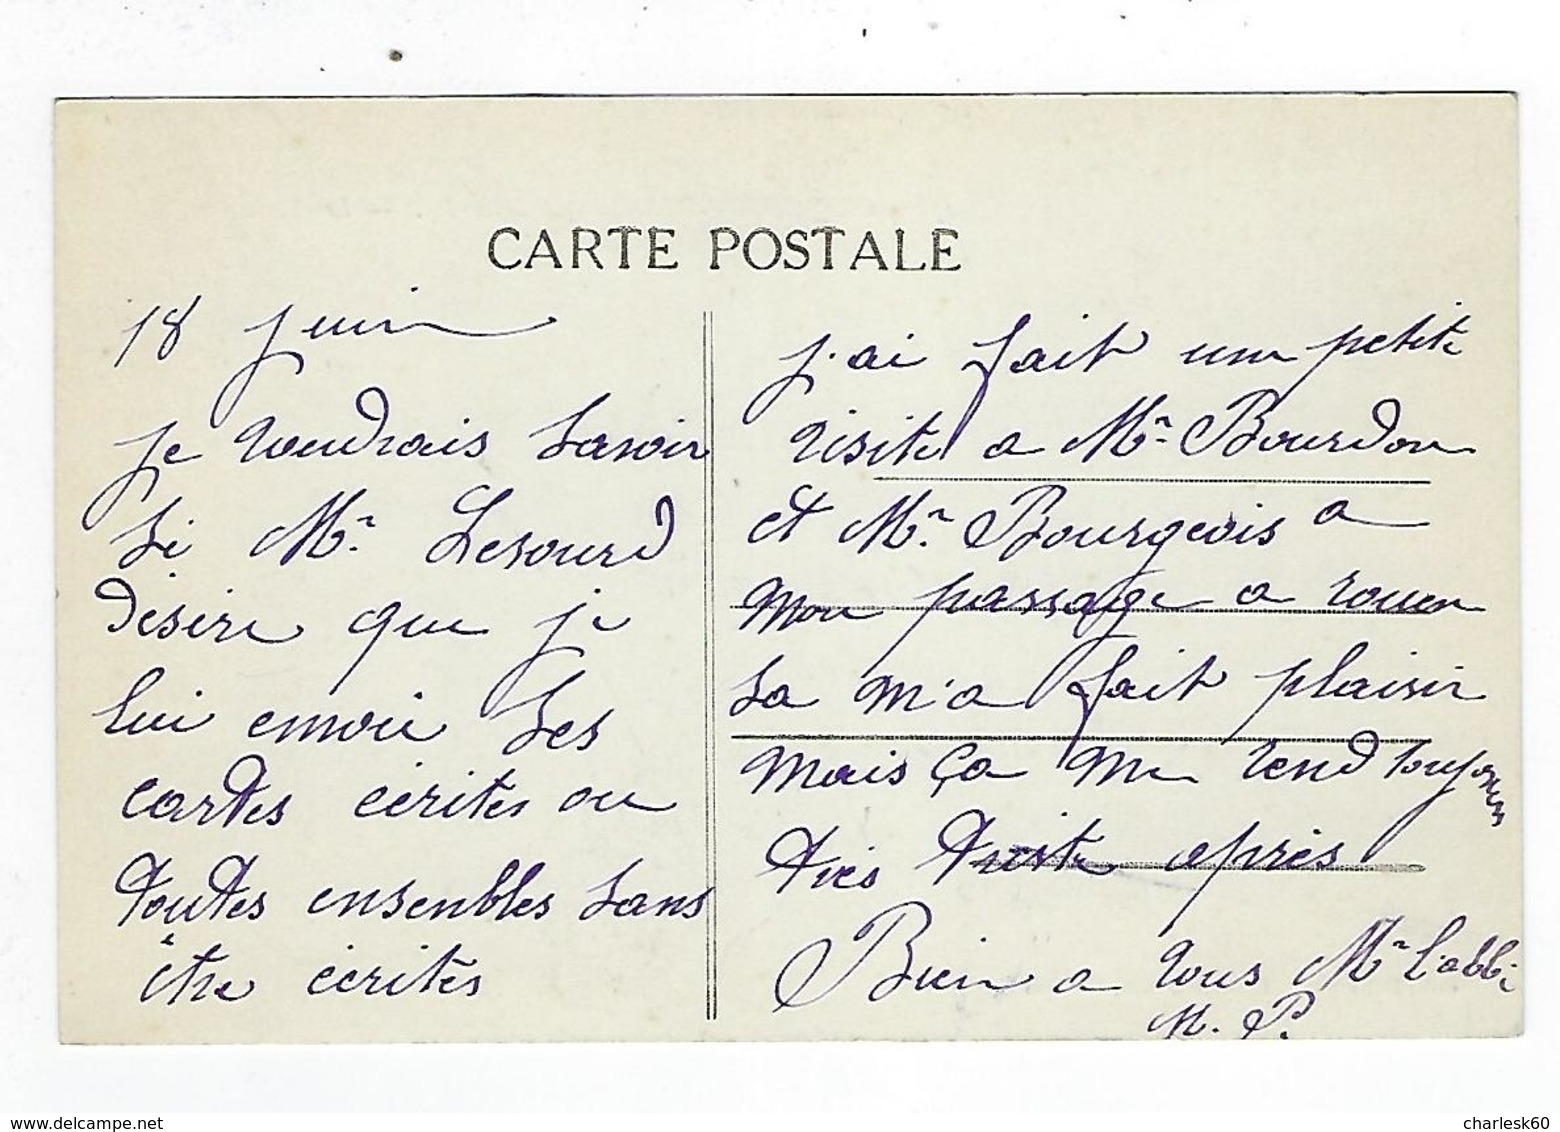 CARTE POSTALE
18 juin
je voudrais savoir
si Mr. Lesourd
désire que je
lui envoie ses
cartes écrites ou
toutes ensenbles sans
être écrites
j'ai fait une petite
visite a Mr. Bourdon
et Mr. Bourgeois a
mon passage a rouen
sa m'a fait plaisir
mais ça me rend toujours
très triste après
Bien a vous Mr l'abbé
M. P.
www.delcampe.net
charlesk60